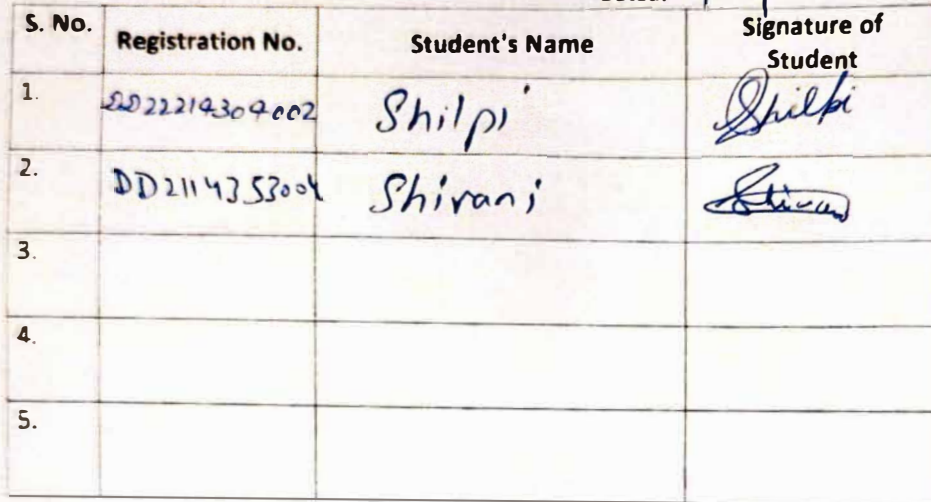 S. No. Registration No. Student's Name Signature of Student
1. DD22214304002 Shilpi Shilpi
2. DD2114353004 Shivani Shivani
3.
4.
5.